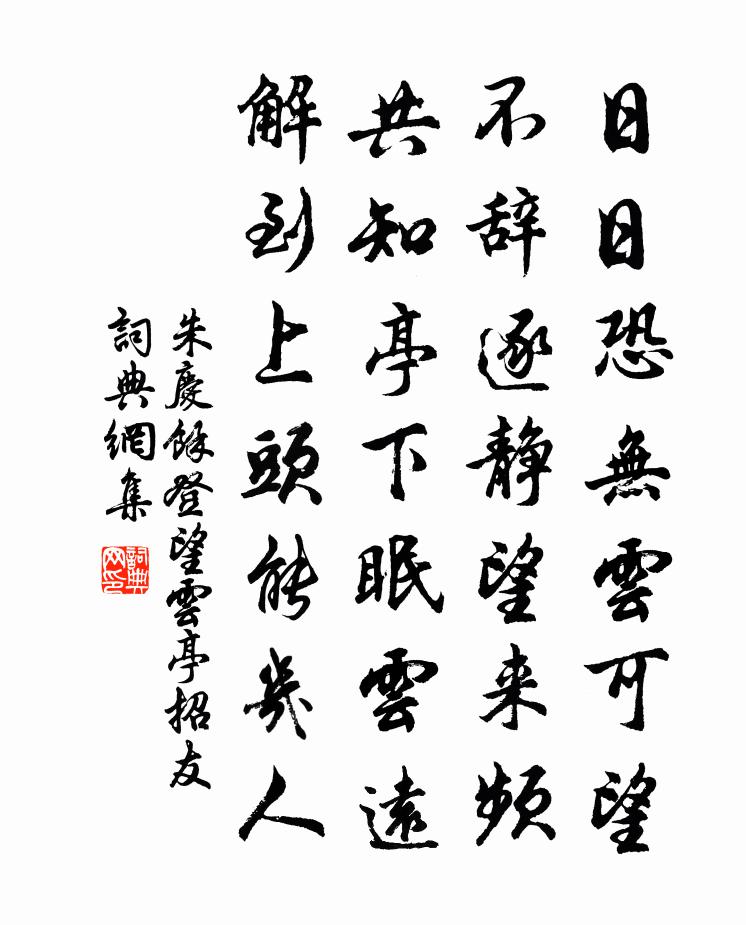 日日恐無雲可望
不辞逐静望来頻
共知亭下眠雲遠
解到上頭能幾人
朱慶餘登望雲亭招友
詞典網集
詞典
网印